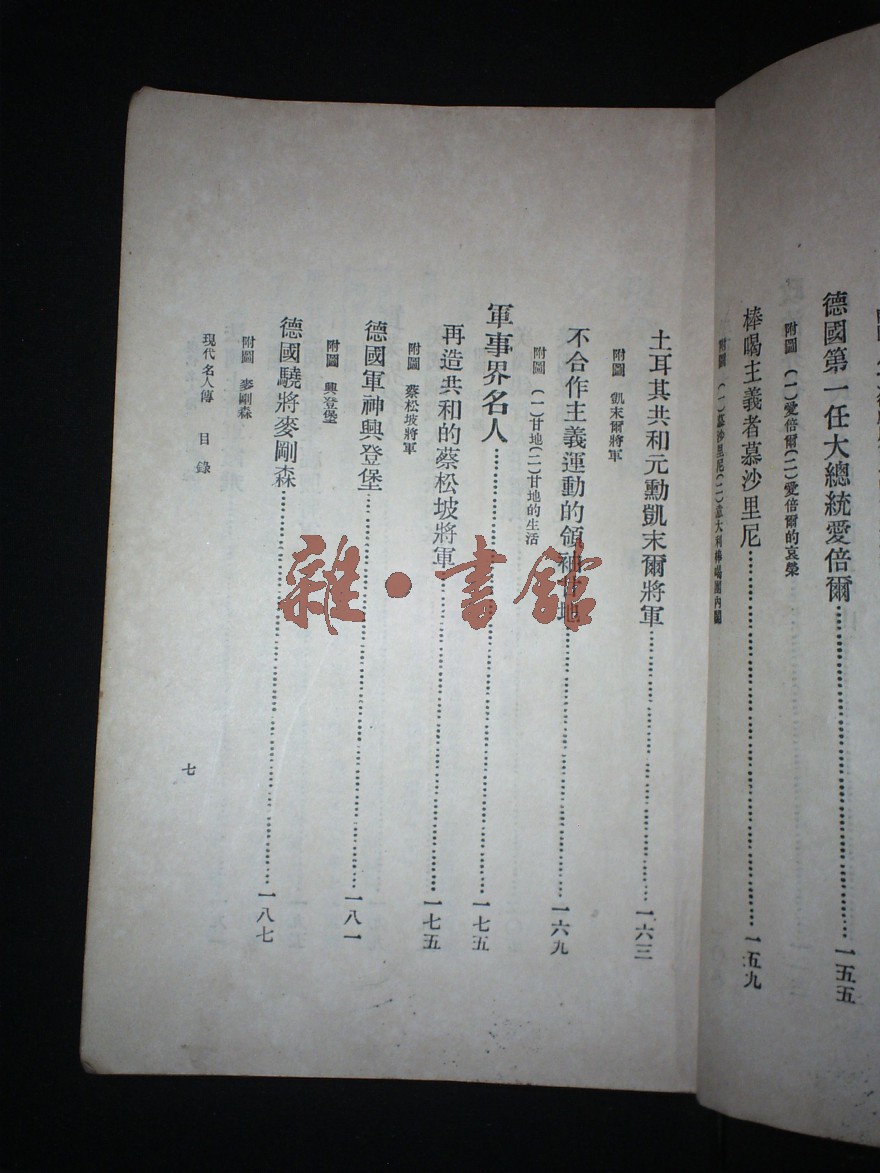 德國第一任大總統愛倍爾……一五五
附圖 (一)愛倍爾(二)愛倍爾的哀榮
棒喝主義者慕沙里尼……一五九
附圖 (一)慕沙里尼(二)意大利棒喝團內閣
土耳其共和元勳凱末爾將軍……一六三
附圖 凱末爾將軍
不合作主義運動的領袖甘地……一六九
附圖 (一)甘地(二)甘地的生活
軍事界名人……一七五
再造共和的蔡松坡將軍……一七五
附圖 蔡松坡將軍
德國軍神興登堡……一八一
附圖 興登堡
德國驍將麥剛森……一八七
附圖 麥剛森
現代名人傳 目錄
七
雜·書館